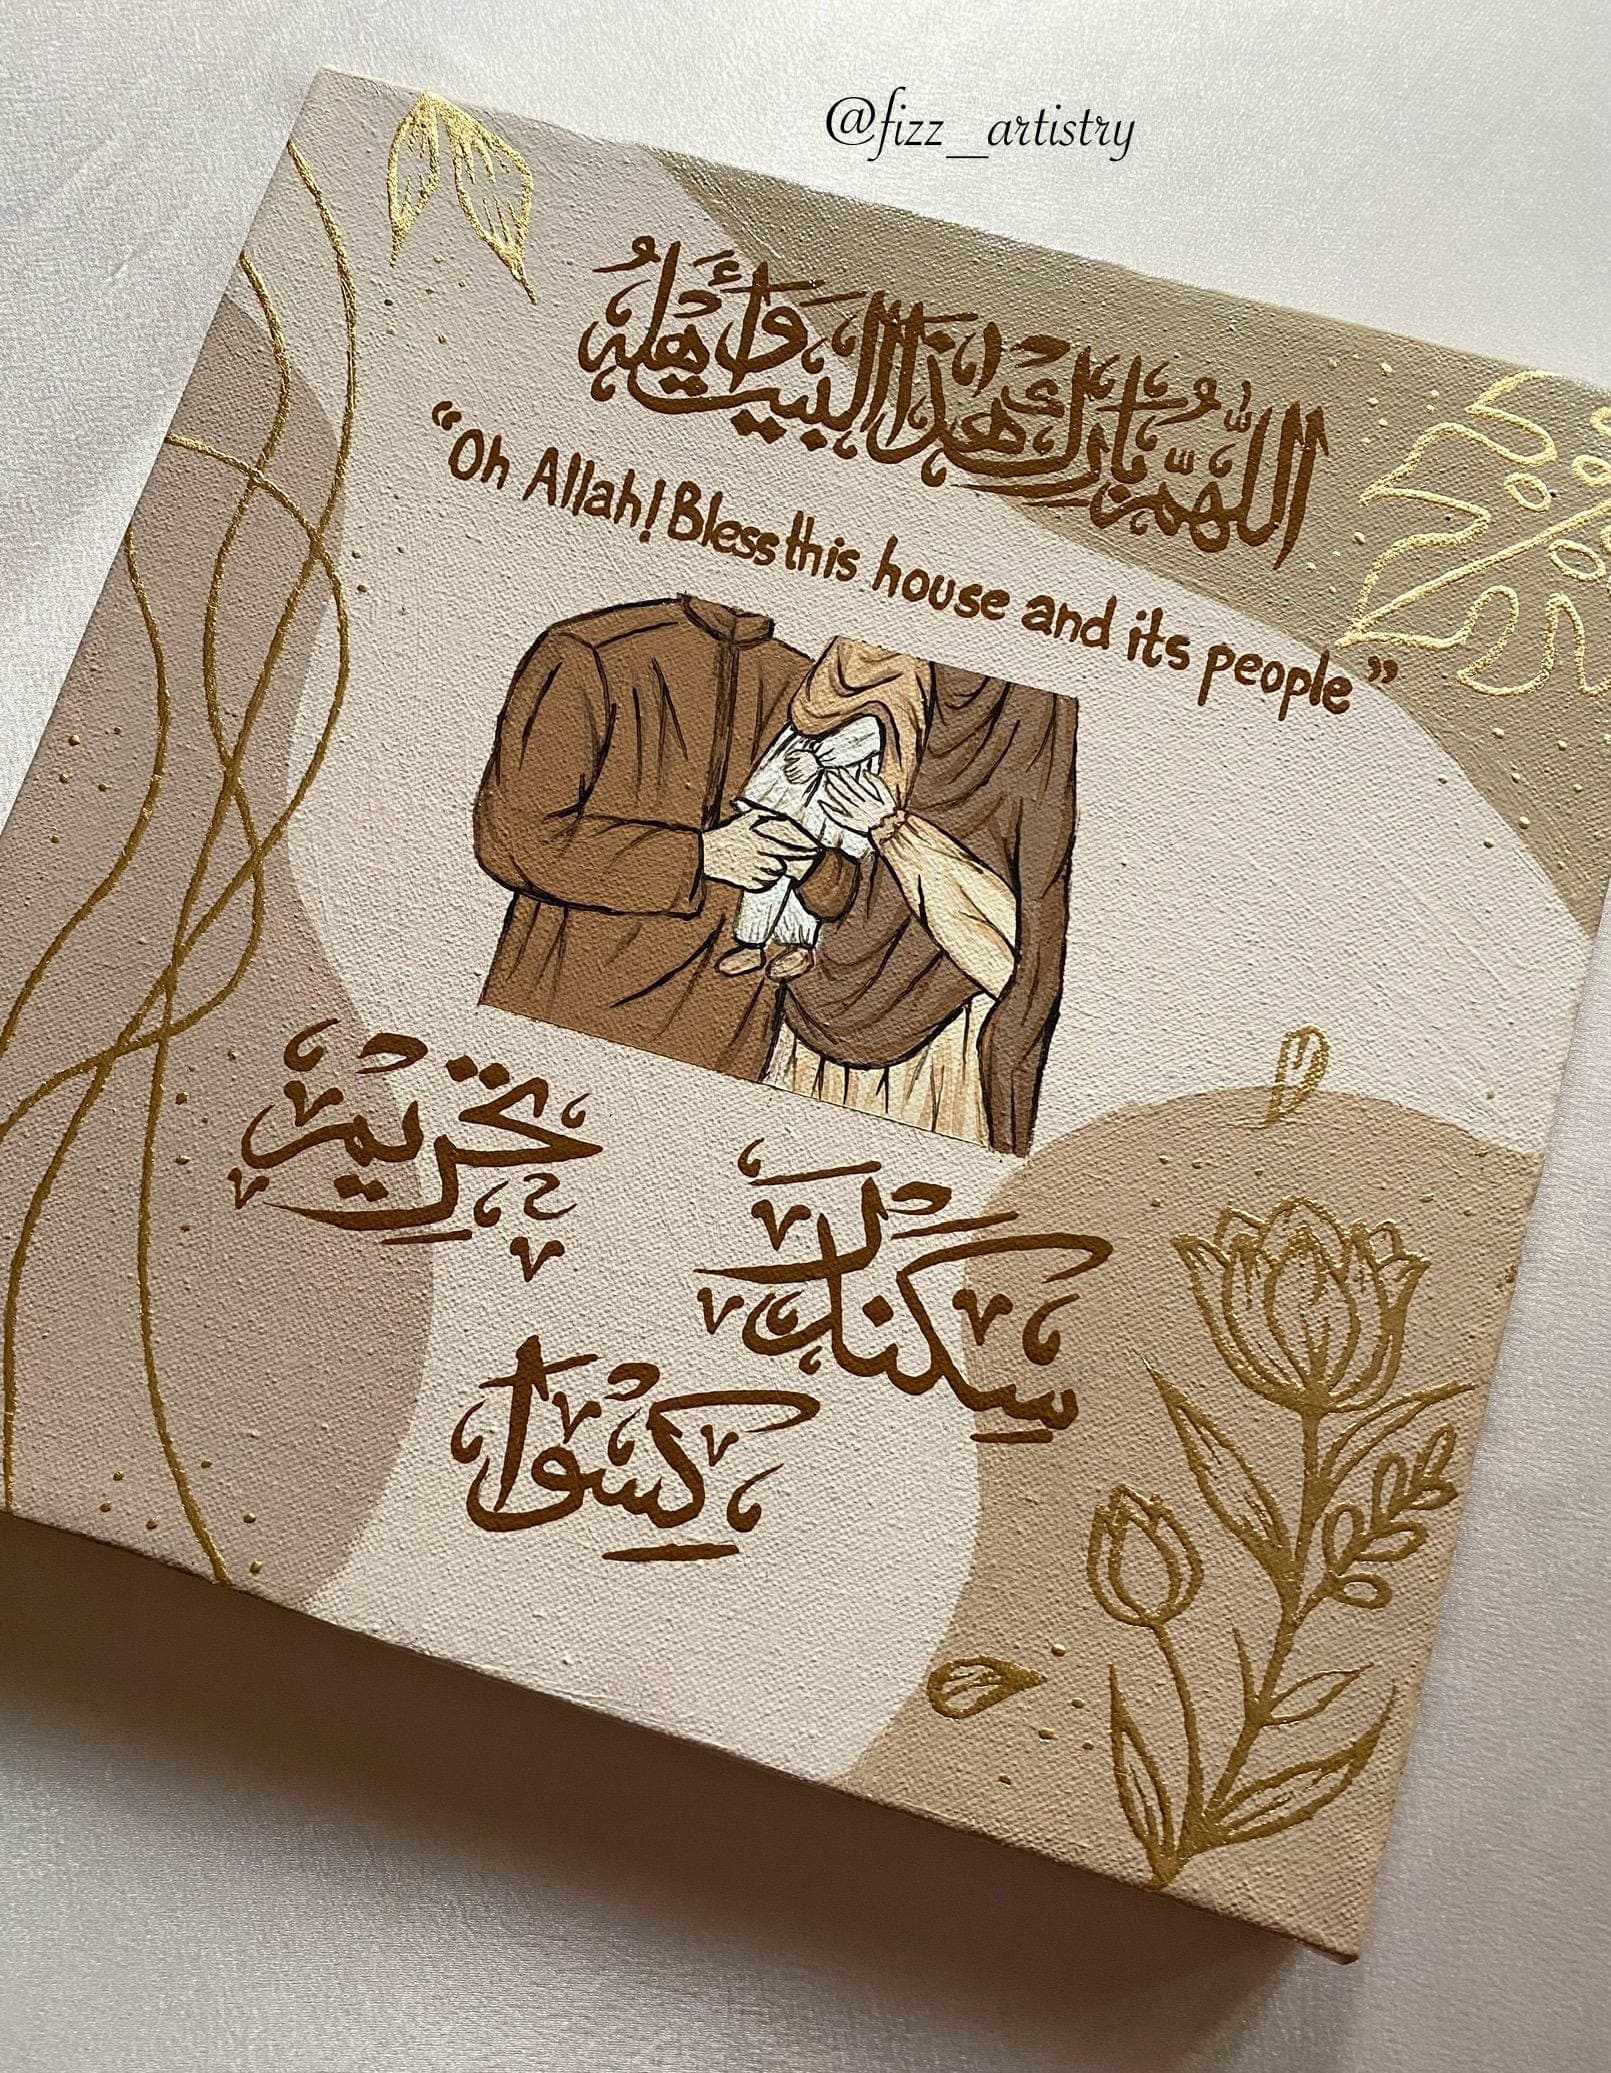 @fizz_artistry
اللّهُمَّ بَارِكْ هٰذَا الْبَيْتَ وَأَهْلَهُ
“Oh Allah! Bless this house and its people”
تحرِيْم
كِسْوَا